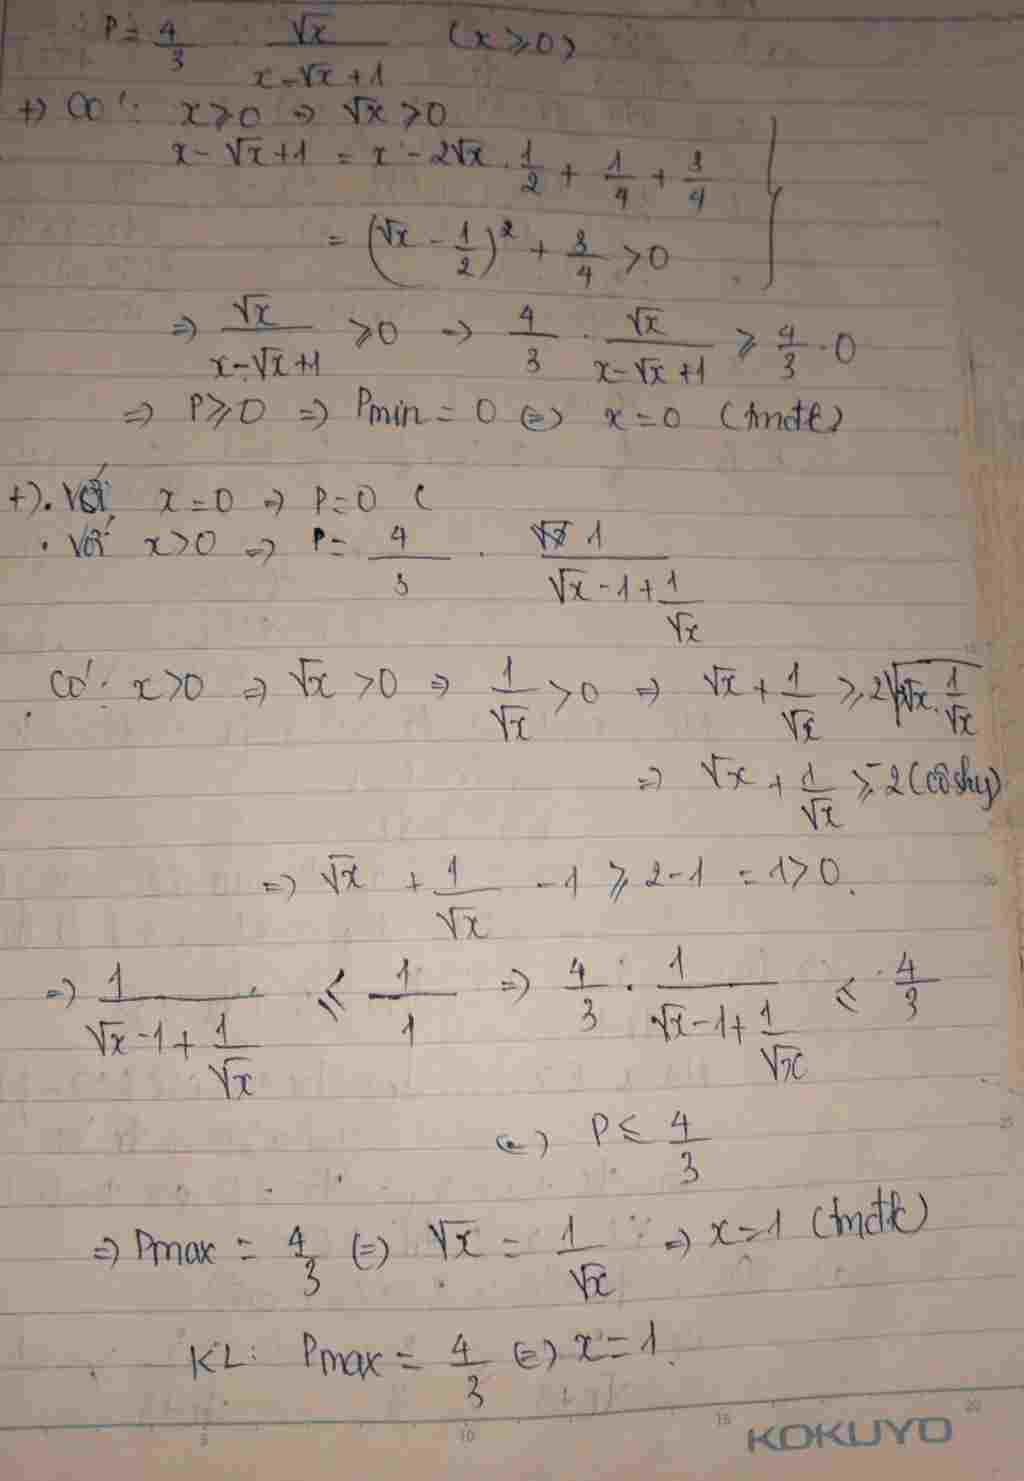 P = 4/3 · √x/(x-√x+1) (x ≥ 0)
+) Có: x ≥ 0 ⇒ √x ≥ 0
x - √x + 1 = x - 2√x . 1/2 + 1/4 + 3/4
= (√x - 1/2)² + 3/4 > 0
⇒ √x/(x-√x+1) ≥ 0 ⇒ 4/3 · √x/(x-√x+1) ≥ 4/3 · 0
⇒ P ≥ 0 ⇒ Pmin = 0 (=) x = 0 (tmđk)
+) . Với x = 0 ⇒ P = 0 (
. Với x > 0 ⇒ P = 4/3 . 1/(√x - 1 + 1/√x)
Có: x > 0 ⇒ √x > 0 ⇒ 1/√x > 0 ⇒ √x + 1/√x ≥ 2√(√x . 1/√x)
⇒ √x + 1/√x ≥ 2 (côshy)
⇒ √x + 1/√x - 1 ≥ 2 - 1 = 1 > 0.
⇒ 1/(√x - 1 + 1/√x) ≤ 1/1 ⇒ 4/3 . 1/(√x - 1 + 1/√x) ≤ 4/3
(=) P ≤ 4/3
⇒ Pmax = 4/3 (=) √x = 1/√x ⇒ x = 1 (tmđk)
KL: Pmax = 4/3 (=) x = 1.
5 10 15 20
KOKUYO